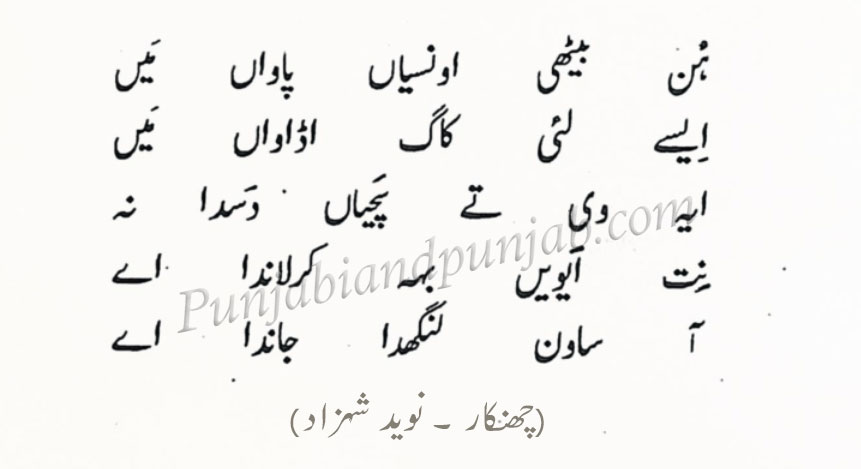 ہُن بیٹھی اونسیاں پاواں مَیں
اِیسے لئی کاگ اڈاواں مَیں
ایہہ وی تے سَچیاں دَسدا نہ
نِت اَیویں بہہ کرلاندا اے
آ ساون لنگھدا جاندا اے
Punjabiandpunjab.com
(چھنکار ۔ نوید شہزاد)